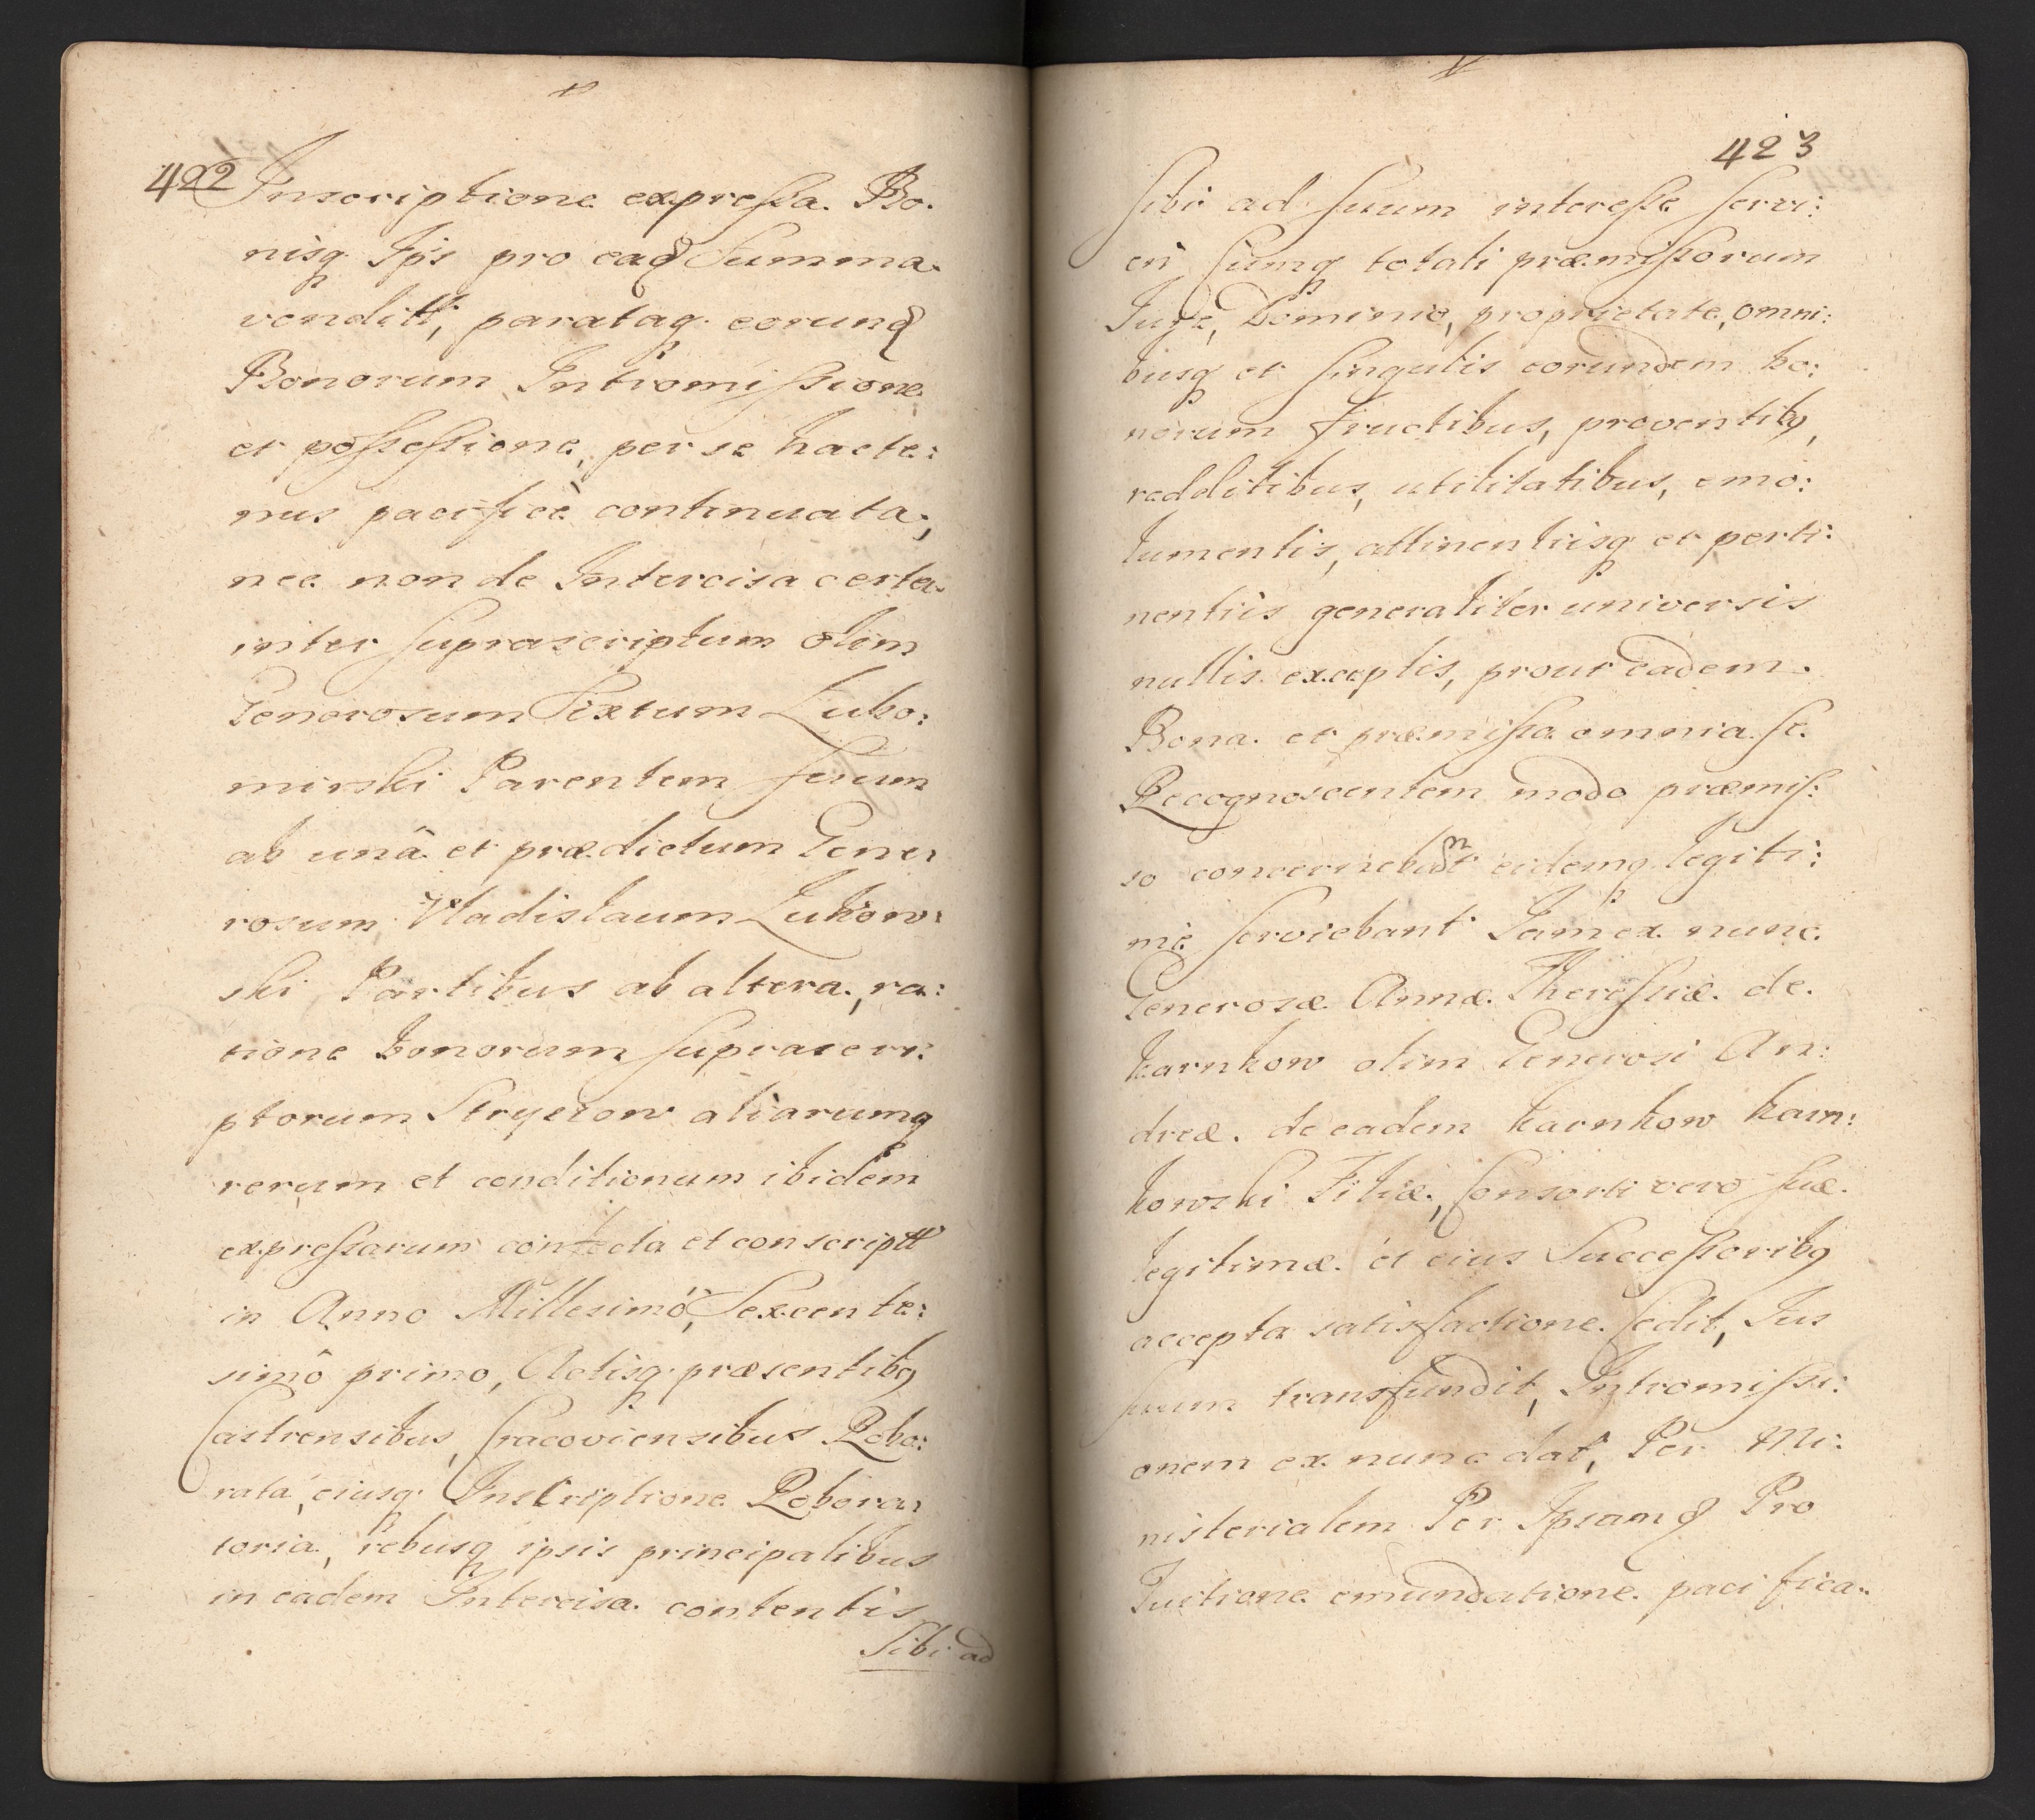 422
Inscriptione expressa. Bo.
nisq Ips pro eaq Summa
venditt, parataq. eorunq
Bonorum Intromissione
et possessione, per se hacte:
nus pacificè continuata,
nec non de Intercisa certa
inter suprascriptum olim
Generosum Sixtum Lubo:
mirski Parentem suum
ab unâ et prædictum Gene:
rosum Vladislaum Lukow:
ski Partibus ab altera, ra:
tione bonorum suprascri:
ptorum Stryszow aliarumq
rerum et conditionum ibidem
expressarum confecta et conscriptt
in Anno Millesimó, Sexcente:
simô primo, Actisq. præsentibq
Castrensibus, Cracoviensibus Robo:
rata, eiusq. Inscriptione Robora:
toria, rebusq ipsis principalibus
in eadem Intercisa contentis
Sibi ad
423
sibi ad suum interesse servi:
en Cumq totali præmissorum
Jure, Dominio, proprietate, omni:
busq et singulis eorundem bo:
norum fructibus, proventibq,
redditibus, utilitatibus, emo:
lumentis, attinentiisq et perti:
nentiis generaliter universis
nullis exceptis, prout eadem
Bona et præmissa omnia se
Recognoscentem modo præmis:
so concernebant eidemq legiti:
me serviebant Jam ex nunc
Generosæ Annæ Theressiæ de
karnkow olim Generosi An:
dreæ de eadem karnkow karn:
kowski Filiæ, Consorti vero suæ
legitimæ et eius Successoribq
accepta satisfactione Cedit, Jus
suum transfundit, Intromissi:
onem ex nunc dat, Per Mi:
nisterialem Per Ipsamq Pro
Tuitione emundatione pacifica: